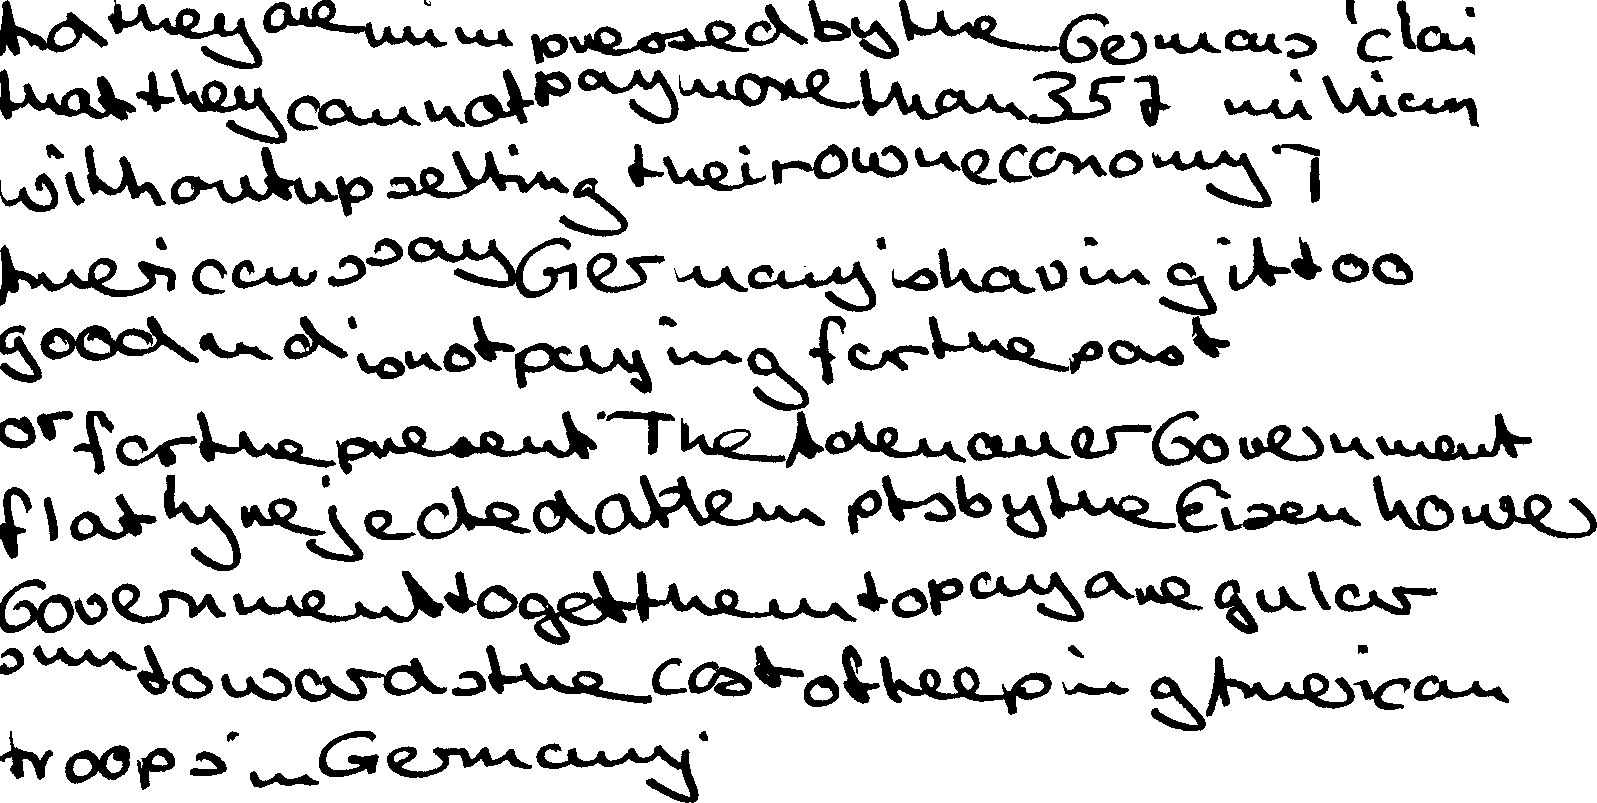 And they are unimpressed by the Germans' clai
that they cannot pay more than 357 million
without upsetting their own economy 7
Americans say Germany is having it too
good and is not paying for the past
or for the present The Adenauer Government
flatly rejected attempts by the Eisenhower
Government to get them to pay a regular
sum towards the cost of keeping American
troops in Germany